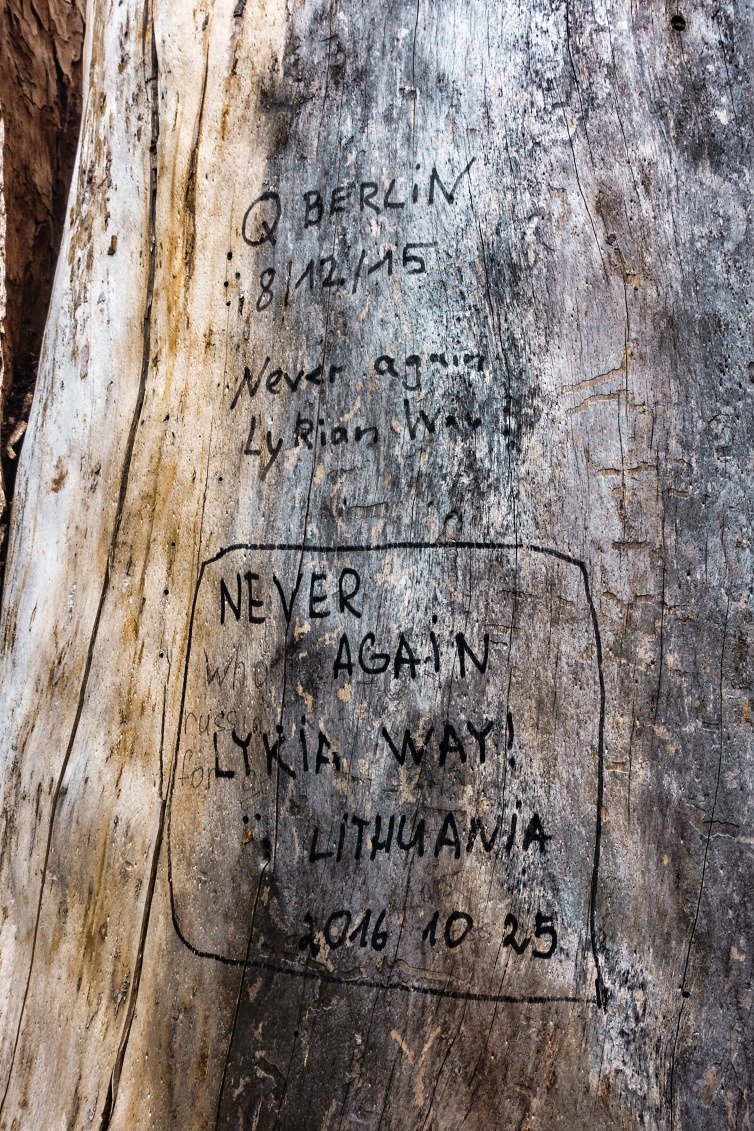 Q BERLiN
8/12/15
Never again
Lykian Way!
NEVER
AGAiN
who
LYKiA WAY!
LiTHUANiA
2016 10 25